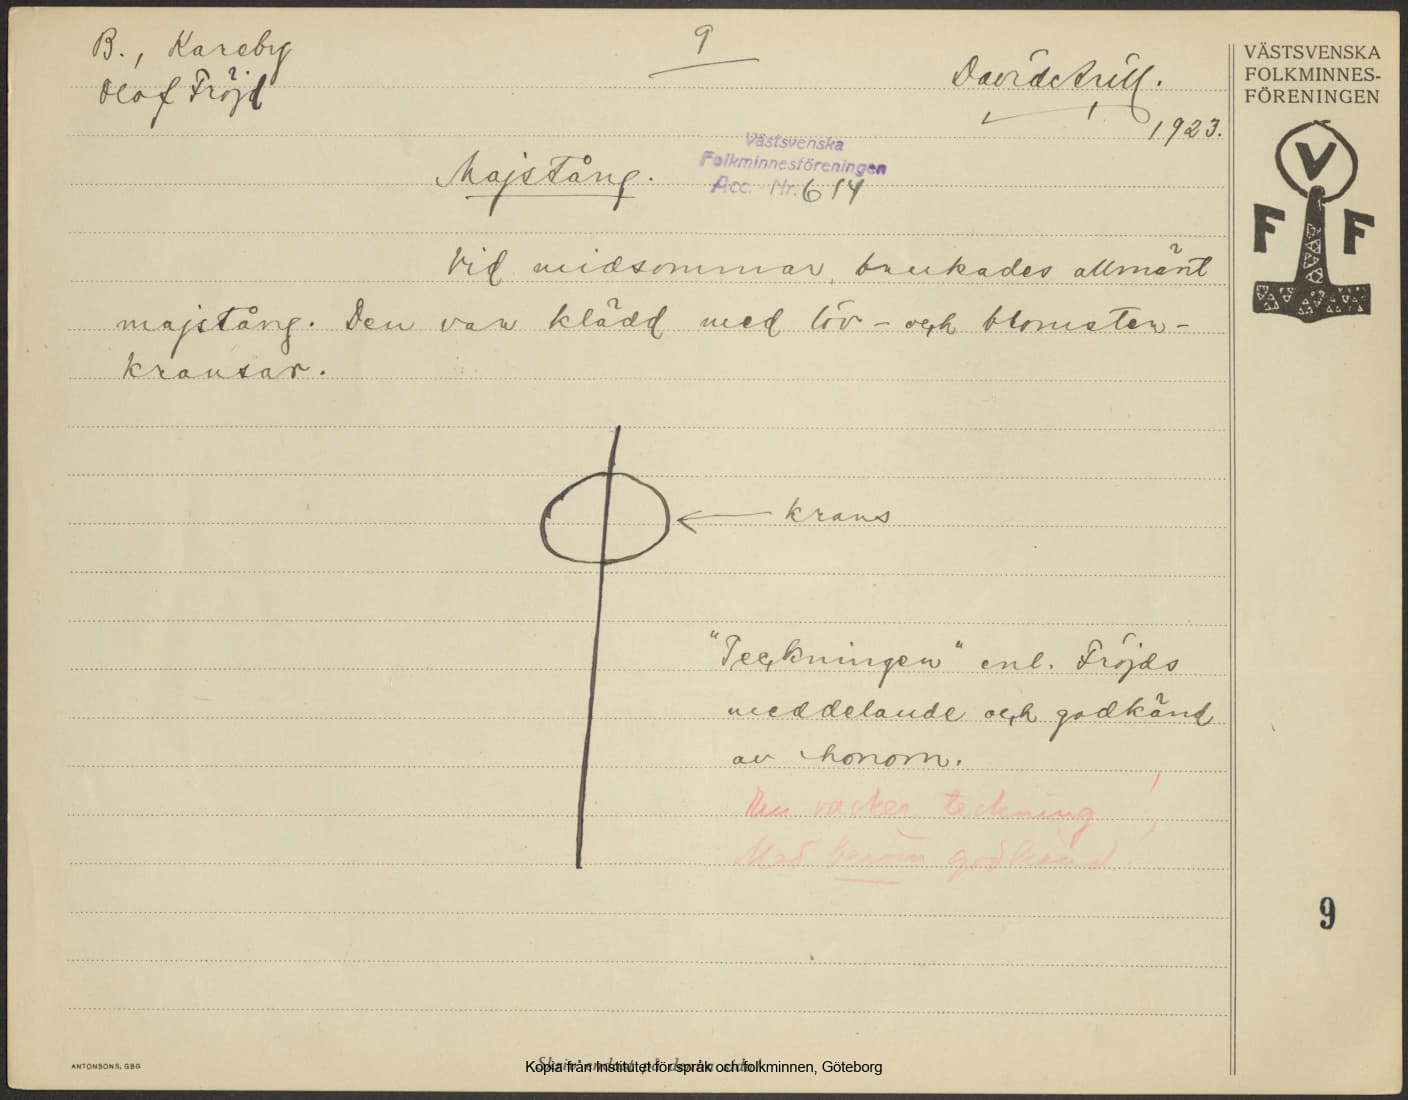 B., Kareby
Olof Fröjd
9
David Arill.
1923.
VÄSTSVENSKA
FOLKMINNES-
FÖRENINGEN
V
F F
Västsvenska
Folkminnesföreningen
Acc. Nr. 614
Majstång.
Vid midsommar brukades allmänt
majstång. Den var klädd med löv- och blomster-
kransar.
krans
"Teckningen" enl. Fröjds
meddelande och godkänd
av honom.
vacker teckning!
godkänd!
9
ANTONSONS, GBG
Kopia från Institutet för språk och folkminnen, Göteborg